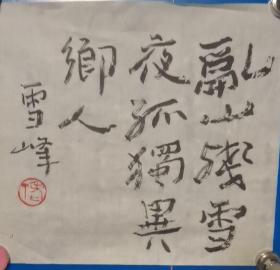 亂山殘雪
夜孤獨異
鄉人
雪峰